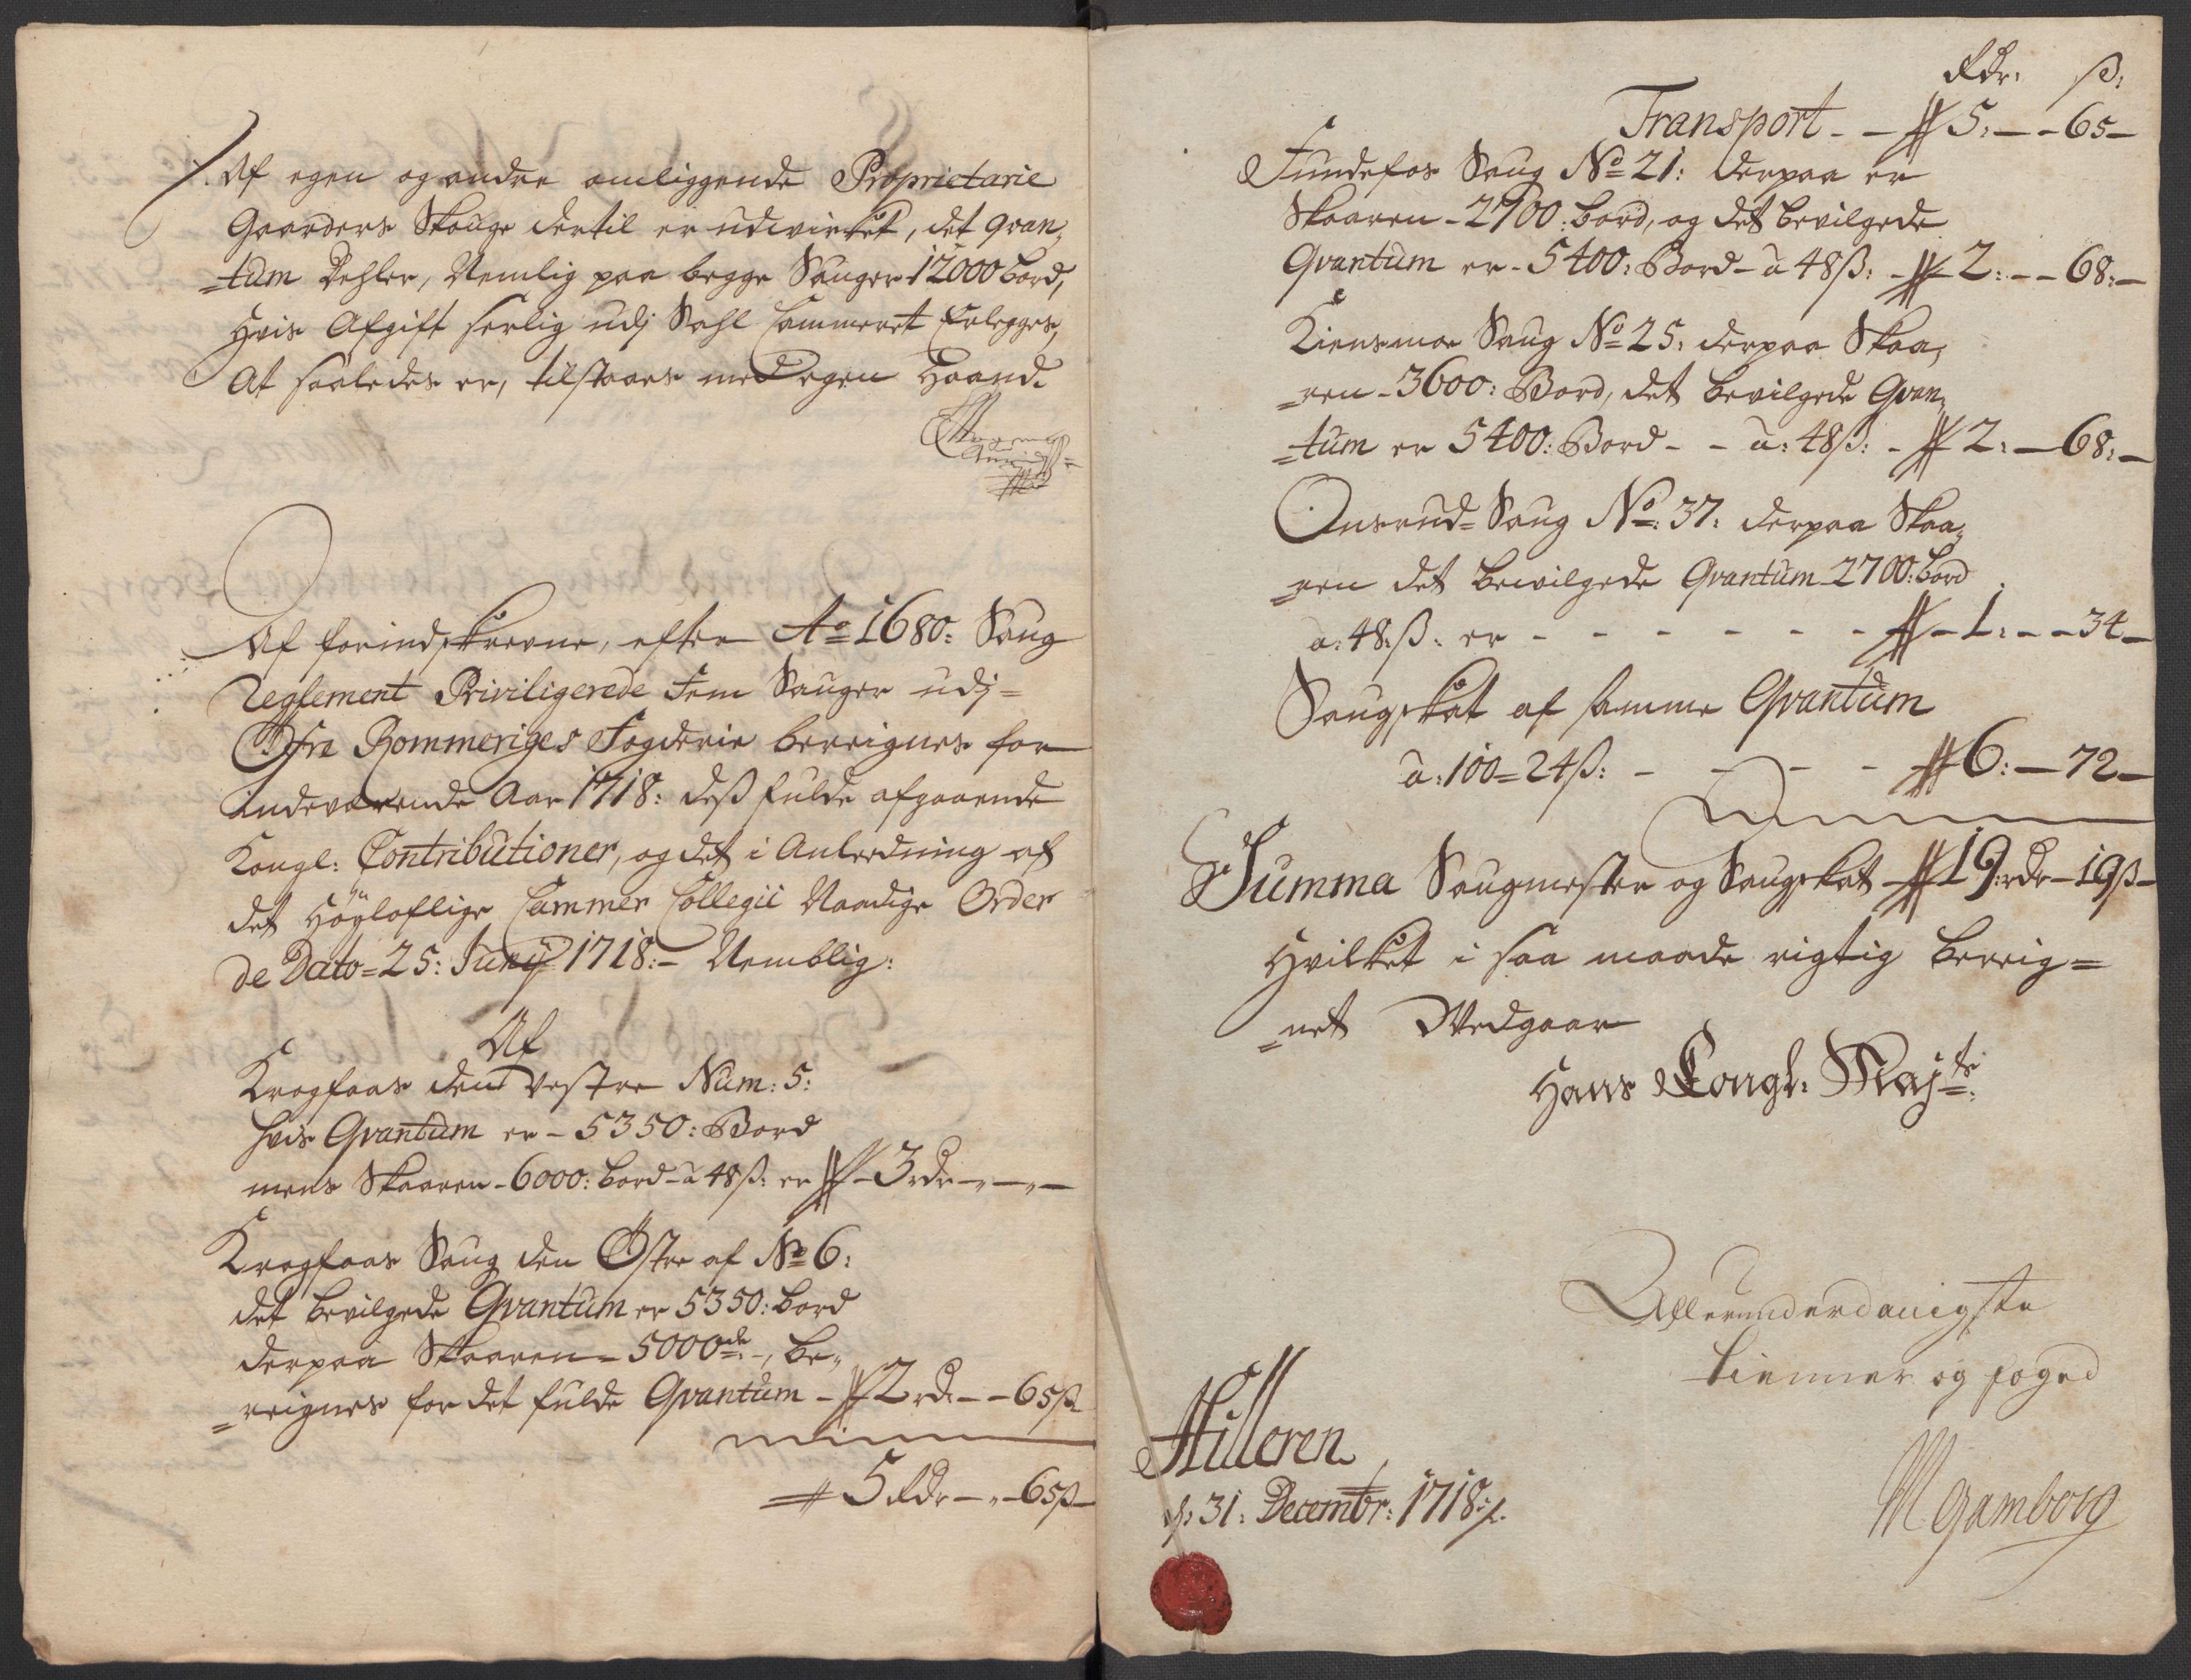 Af egen og andre omliggende Proprietarie
Gaarders Skouge dertil er udvirket, det qvan-
=tum Dehler, Nemlig paa begge Sauger 12000 bord,
Hvis Afgift særlig udj Sahl Cammeret Erlegges,
At saaledes er, tilstaaes med egen Haand.
Af forindskrevne, efter Ao 1680: Saug
Reglement Priviligerede Fem Sauger udj=
Øfre Rommeriges Fogderie bereignes for
indeværende Aar 1718: deß fulde afgaaende
Kongl: Contributioner, og det i Anledning af
det Höyloflige Cammer Collegii Naadige Order
de Dato=25: Junij 1718:- Nemblig:
Af
Krogfoss den vestre Num: 5:
hvis Qvantum er - 5350: Bord
mens Skaaren - 6000: bord - a 48 ß: er # 3 rdr - " - " -
Krogfoss Saug den Østre af No 6:
det bevilgede Qvantum er 5350: bord
derpaa Skaaren = 5000de -, be-
=reignes for det fulde Qvantum - # 2 rdr - - 65 ß
# 5 Rdr - " - 65 ß -
Rdr: ß:
Transport - - # 5: - - 65 -
Fundefos Saug No 21: derpaa er
Skaaren - 2700: bord, og det bevilgede
Qvantum er - 5400: Bord - a 48 ß: - # 2: - - 68: -
Kiensmoe Saug No 25: derpaa Skaa-
=ren - 3600: Bord, det bevilgede Qvan-
=tum er 5400: Bord - - a: 48 ß: - # 2: - 68: -
Onsrud= Saug No: 37: derpaa Skaa-
=ren det bewilgede Qvantum 2700: bord
a: 48: ß: er - - - - - - - # - 1: - - 34 -
Saugskat af samme Qvantum
a: 100 = 24 ß: - - - - # 6: - 72 -
Summa Saugmester og Saugskat - # 19: rdr - 19 ß -
Hvilket i saa maade rigtig bereig=
=net Wedgaar
Hans Kongl: Majts:
Allerunderdanigste
tienner og foged
Hilleren
d: 31: Decembr: 1718:/.
M Gamborg